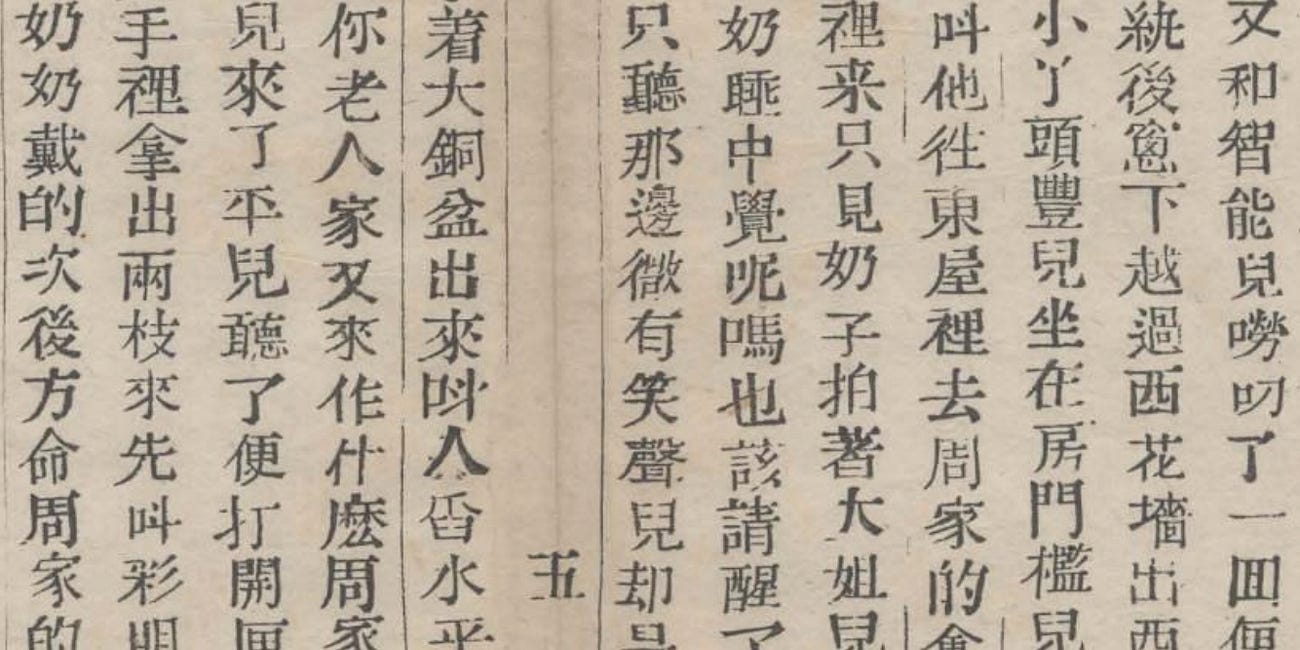 又和智能兒嘮叨了一囬便
綂後窓下越過西花墻出西
小丫頭豐兒坐在房門檻兒
呌他徃東屋裡去周家的會
裡来只見奶子拍著大姐兒
奶睡中覺呢嗎也該請醒了
只聽那邊微有笑聲兒却是
五
着大銅盆出來呌人舀水平
你老人家又來作什麽周家
兒來了平兒聽了便打開匣
手裡拿出兩枝來先呌彩明
奶奶戴的次後方命周家的